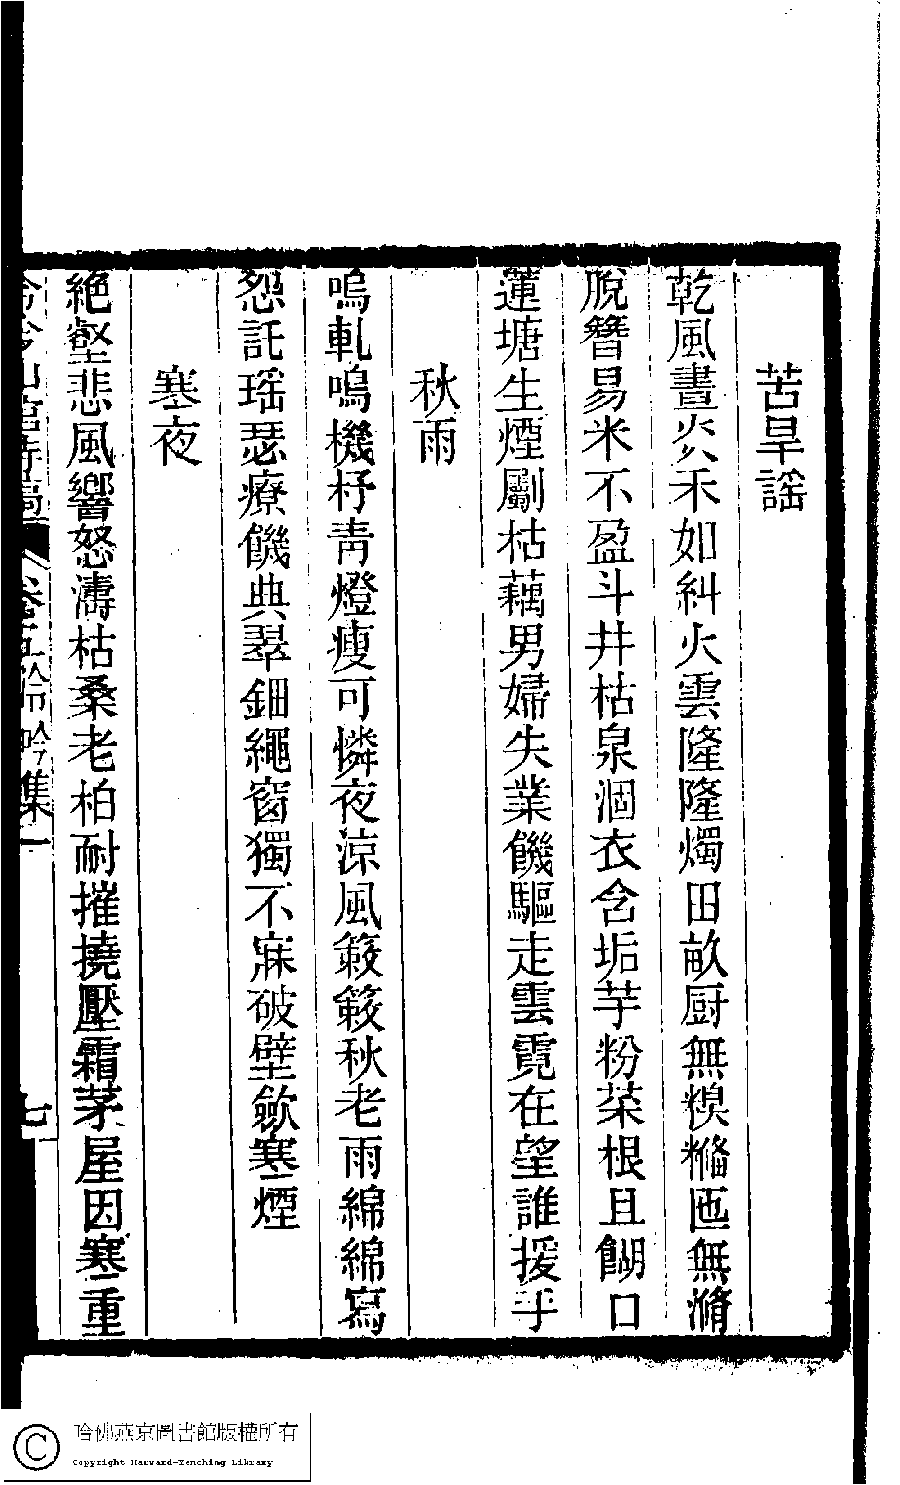 苦旱謠
乾風晝炎禾如糾火雲隆隆燭田畝厨無糗糒匜無滫
脫簪易米不盈斗井枯泉涸衣含垢芋粉菜根且餬口
蓮塘生煙劚枯藕男婦失業饑驅走雲霓在望誰援手
秋雨
嗚軋嗚機杼青燈瘦可憐夜涼風簌簌秋老雨綿綿寫
怨託瑤瑟療饑典翠鈿繩窗獨不寐破壁歛寒煙
寒夜
絕壑悲風響怒濤枯桑老柏耐摧撓壓霜茅屋因寒重
卷五 吟集一
七
哈佛燕京圖書館版權所有
Copyright Harvard-Yenching Library